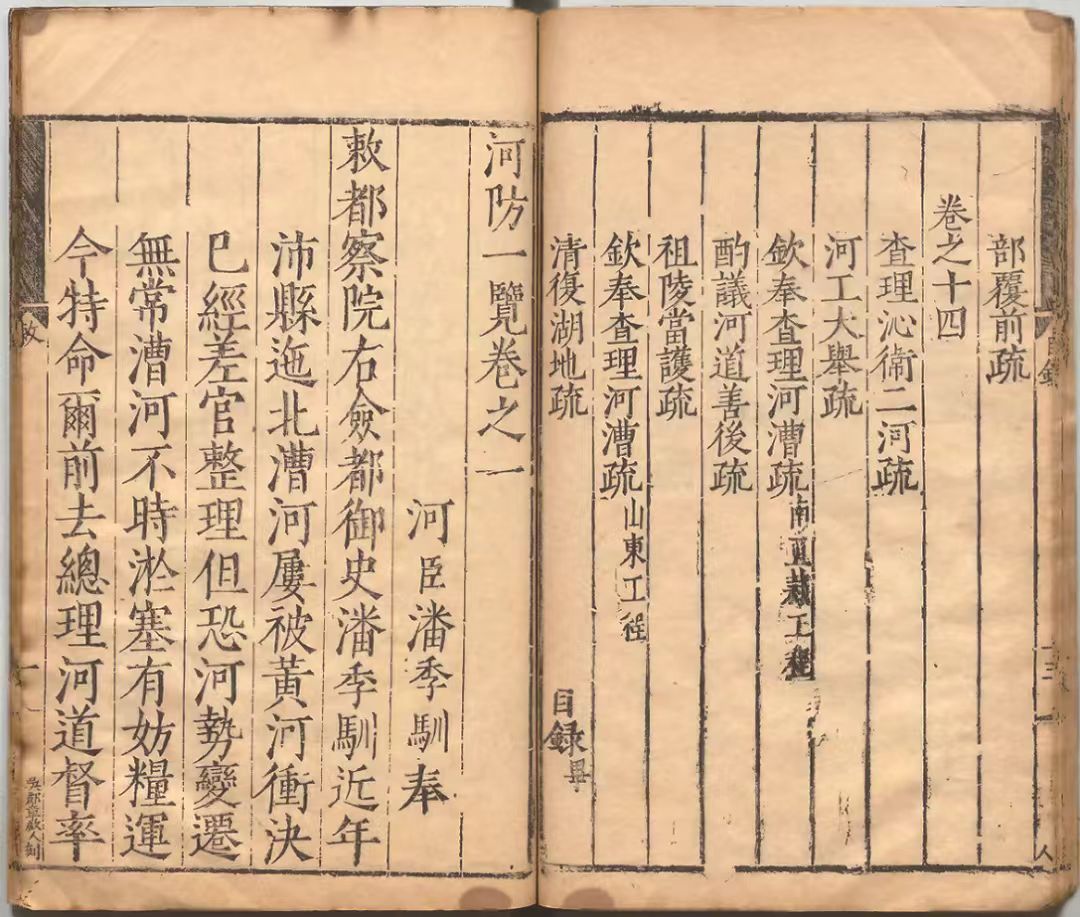 部覆前疏
卷之十四
查理沁衛二河疏
河工大舉疏
欽奉查理河漕疏南直隸工程
酌議河道善後疏
祖陵當護疏
欽奉查理河漕疏山東工程
清復湖地疏
目録畢
河防一覽卷之一
河臣潘季馴奉
敕都察院右僉都御史潘季馴近年
沛縣迤北漕河屢被黃河衝決
已經差官整理但恐河勢變遷
無常漕河不時淤塞有妨糧運
今特命爾前去總理河道督率